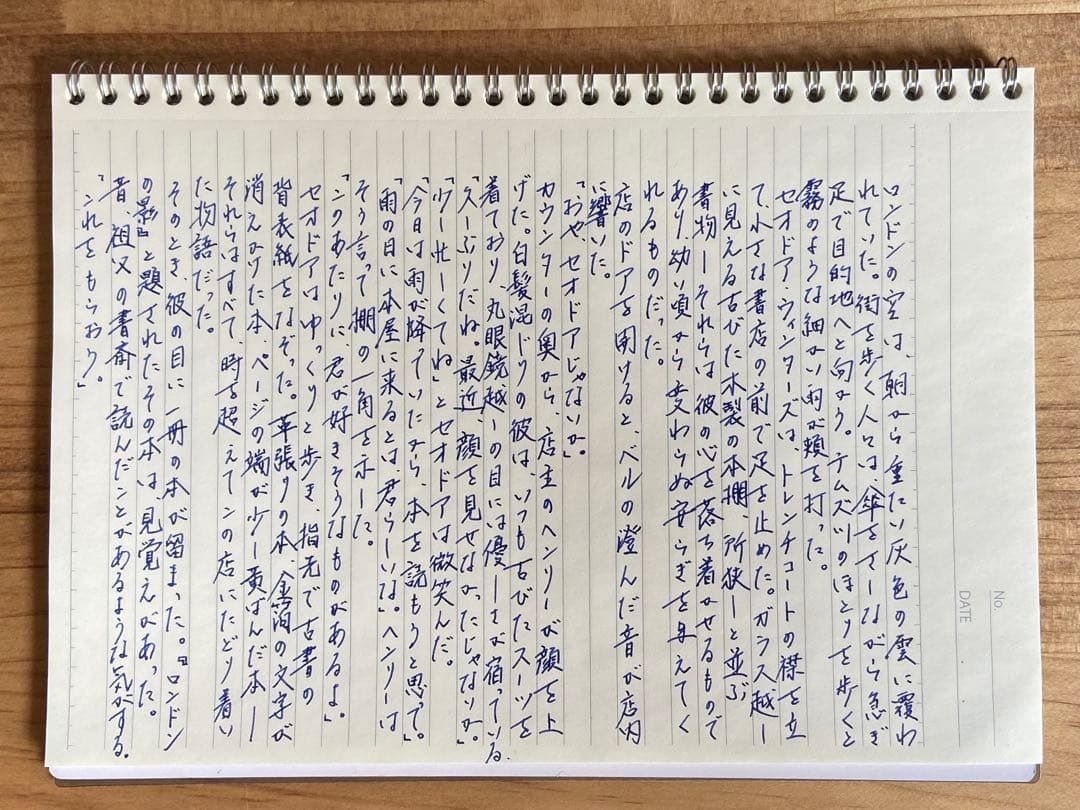 No.
DATE
ロンドンの空は、朝から重たい灰色の雲に覆わ
れていた。街を歩く人々は、傘をさしながら急ぎ
足で目的地へと向かう。テムズ川のほとりを歩くと
霧のような細かい雨が頬を打った。
セオドア・ウィンターズは、トレンチコートの襟を立
て、小さな書店の前で足を止めた。ガラス越し
に見える古びた木製の本棚、所狭しと並ぶ
書物—それらは彼の心を落ち着かせるもので
あり、幼い頃から変わらぬ安らぎを与えてく
れるものだった。
店のドアを開けると、ベルの澄んだ音が店内
に響いた。
「おや、セオドアじゃないか。」
カウンターの奥から、店主のヘンリーが顔を上
げた。白髪混じりの彼は、いつも古びたスーツを
着ており、丸眼鏡越しの目には優しさが宿っている。
「久しぶりだね。最近、顔を見せなかったじゃないか。」
「少し忙しくてね」とセオドアは微笑んだ。
「今日は雨が降っていたから、本を読もうと思って。」
「雨の日に本屋に来るとは、君らしいな。」ヘンリーは
そう言って棚の一角を示した。
「このあたりに、君が好きそうなものがあるよ。」
セオドアはゆっくりと歩き、指先で古書の
背表紙をなぞった。革張りの本、金箔の文字が
消えかけた本、ページの端が少し黄ばんだ本—
それらはすべて、時を超えてこの店にたどり着い
た物語だった。
そのとき、彼の目に一冊の本が留まった。『ロンドン
の影』と題されたその本は、見覚えがあった。
昔、祖父の書斎で読んだことがあるような気がする。
「これをもらおう。」